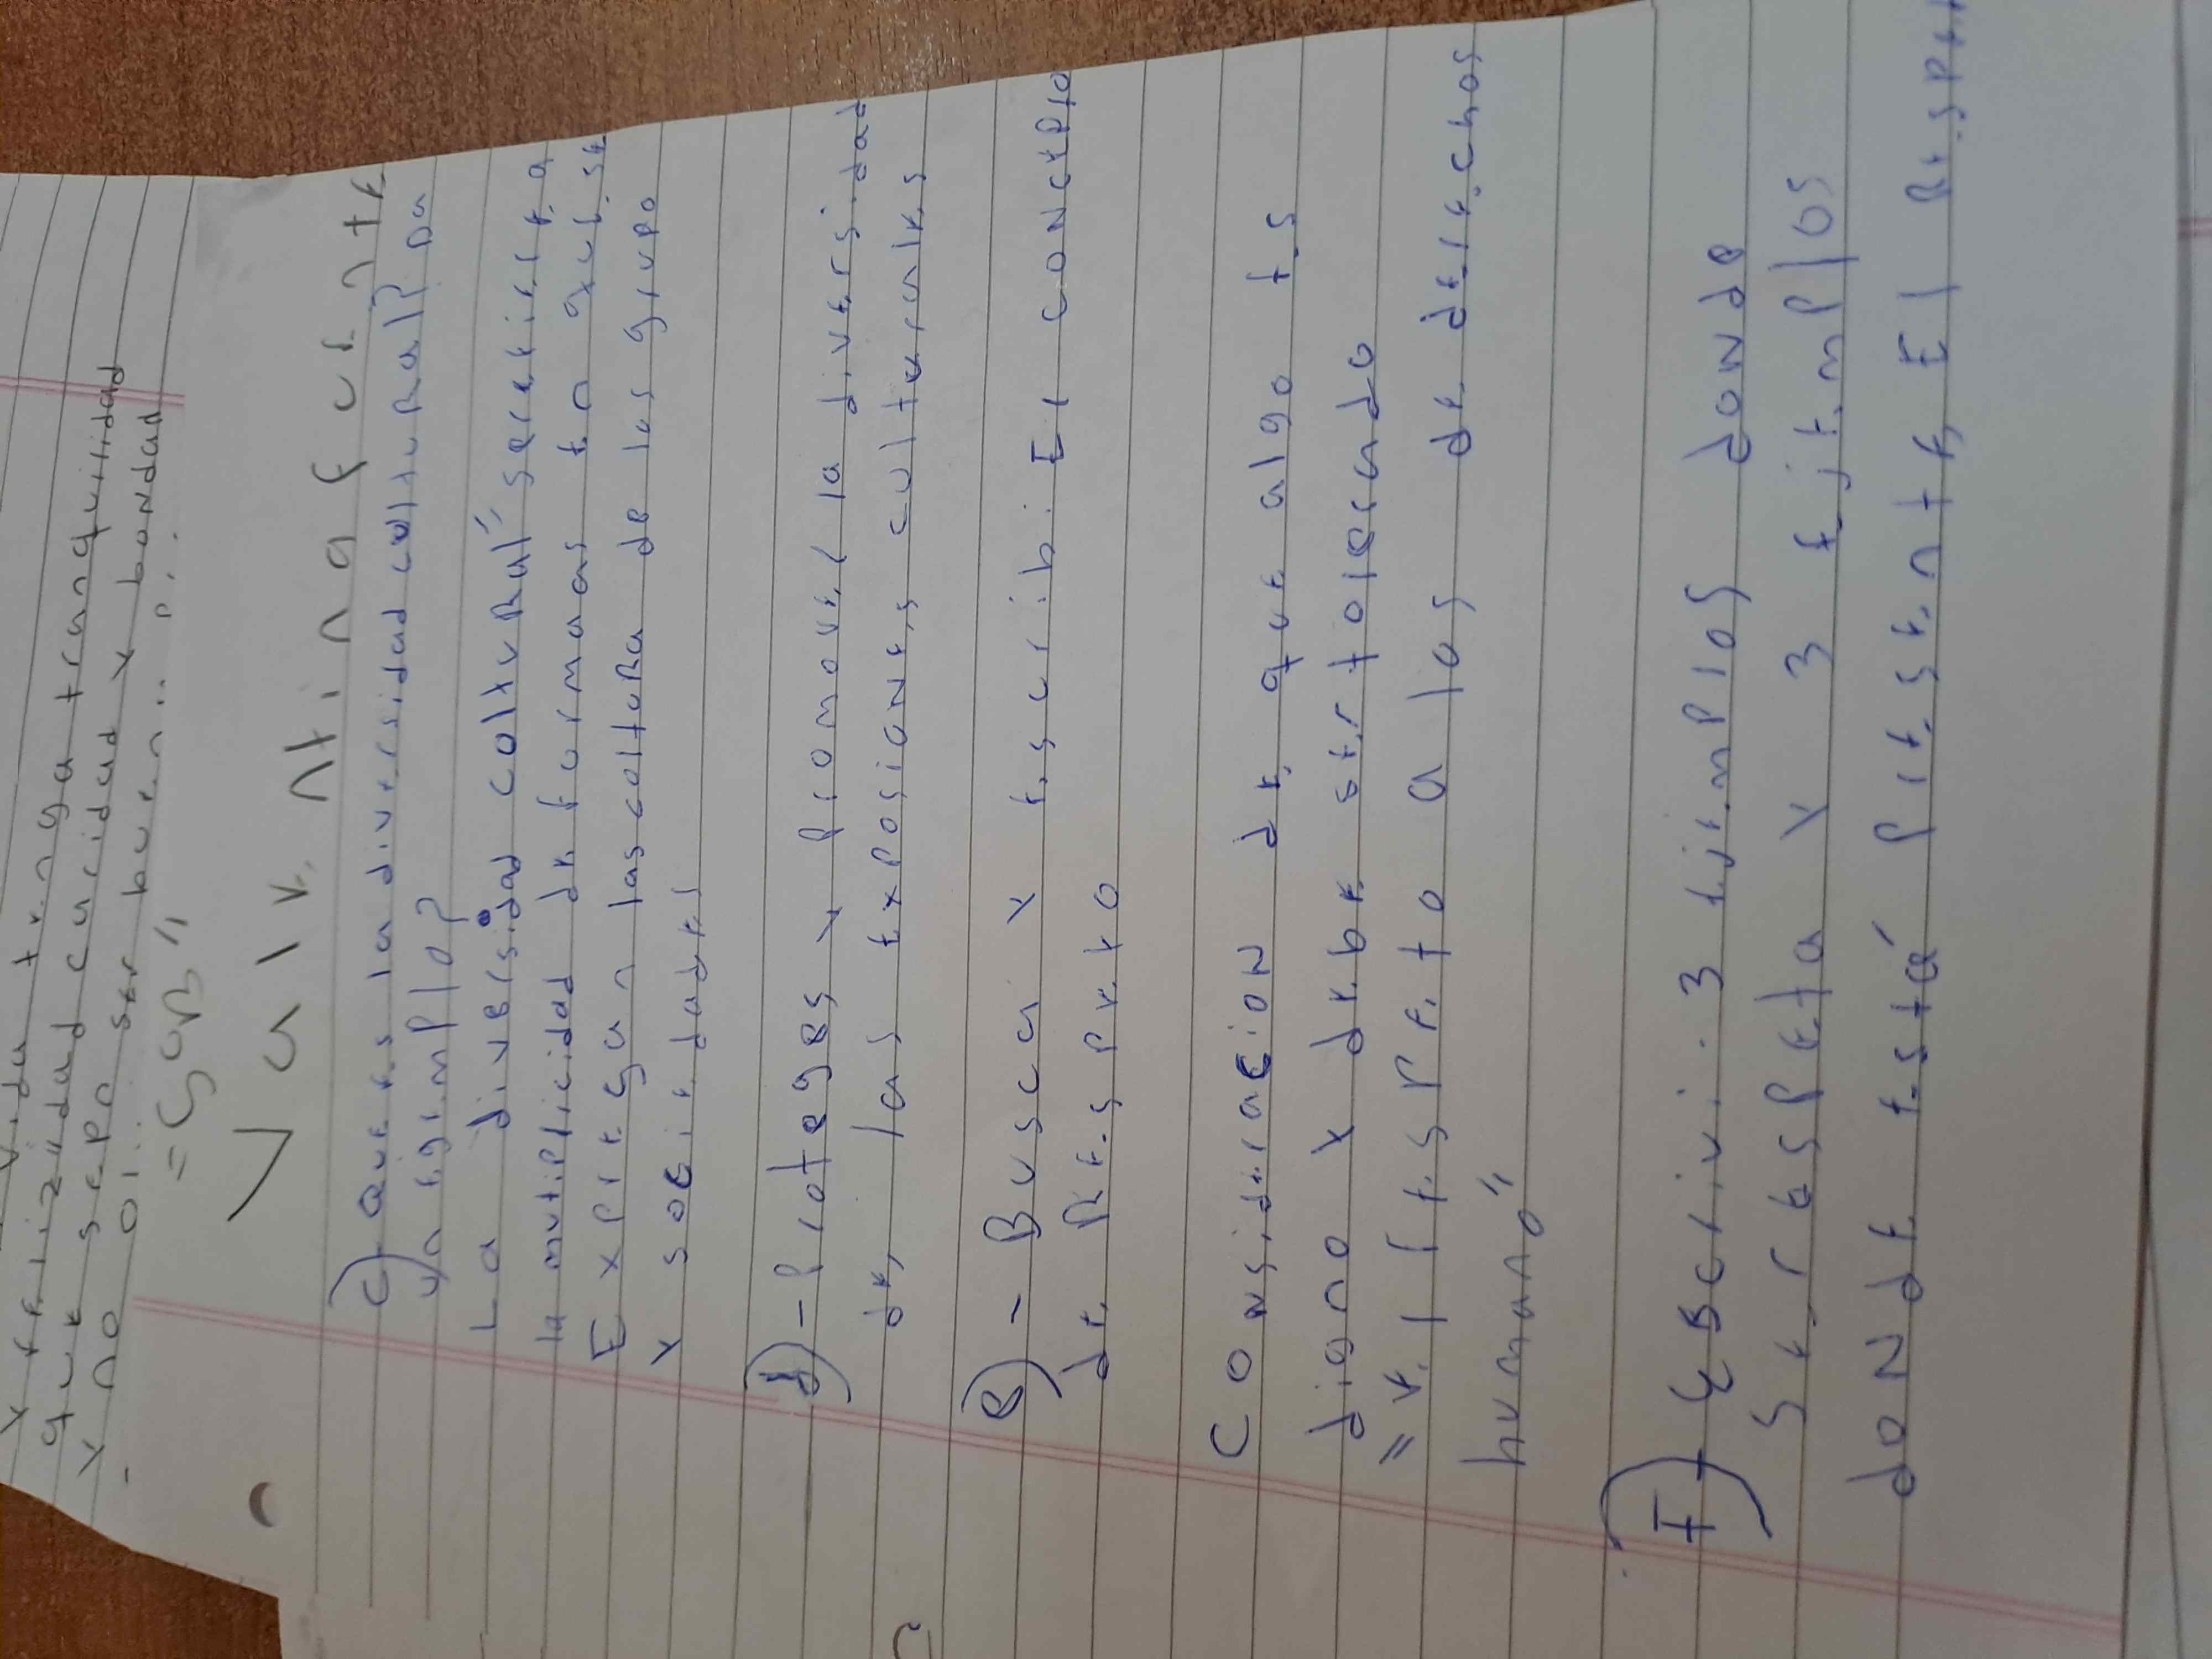 vida tenga tranquilidad
y felizidad caridad y bondad
que sepn ser buen
y no ol
=GaB"
Valentina fuente
C) Que es la diversidad coltuRal? Da
un egimplo?
La diveRsidad coltuRal" serefiere a
la mutiplicidad de formas en que se
Expresan lascoltuRa de los grupo
y socie dades
d)- Proteges y promover la diversidad
de, las exposiones culturales
e)- Buscar y escribi El concepto
de Respeto
Consideracion de que algo es
digno y debe sertolerado
"el respeto a los de derechos
humano"
F) EScrivi. 3 ejemplos donde
se respeta y 3 ejemplos
doNde está presente El